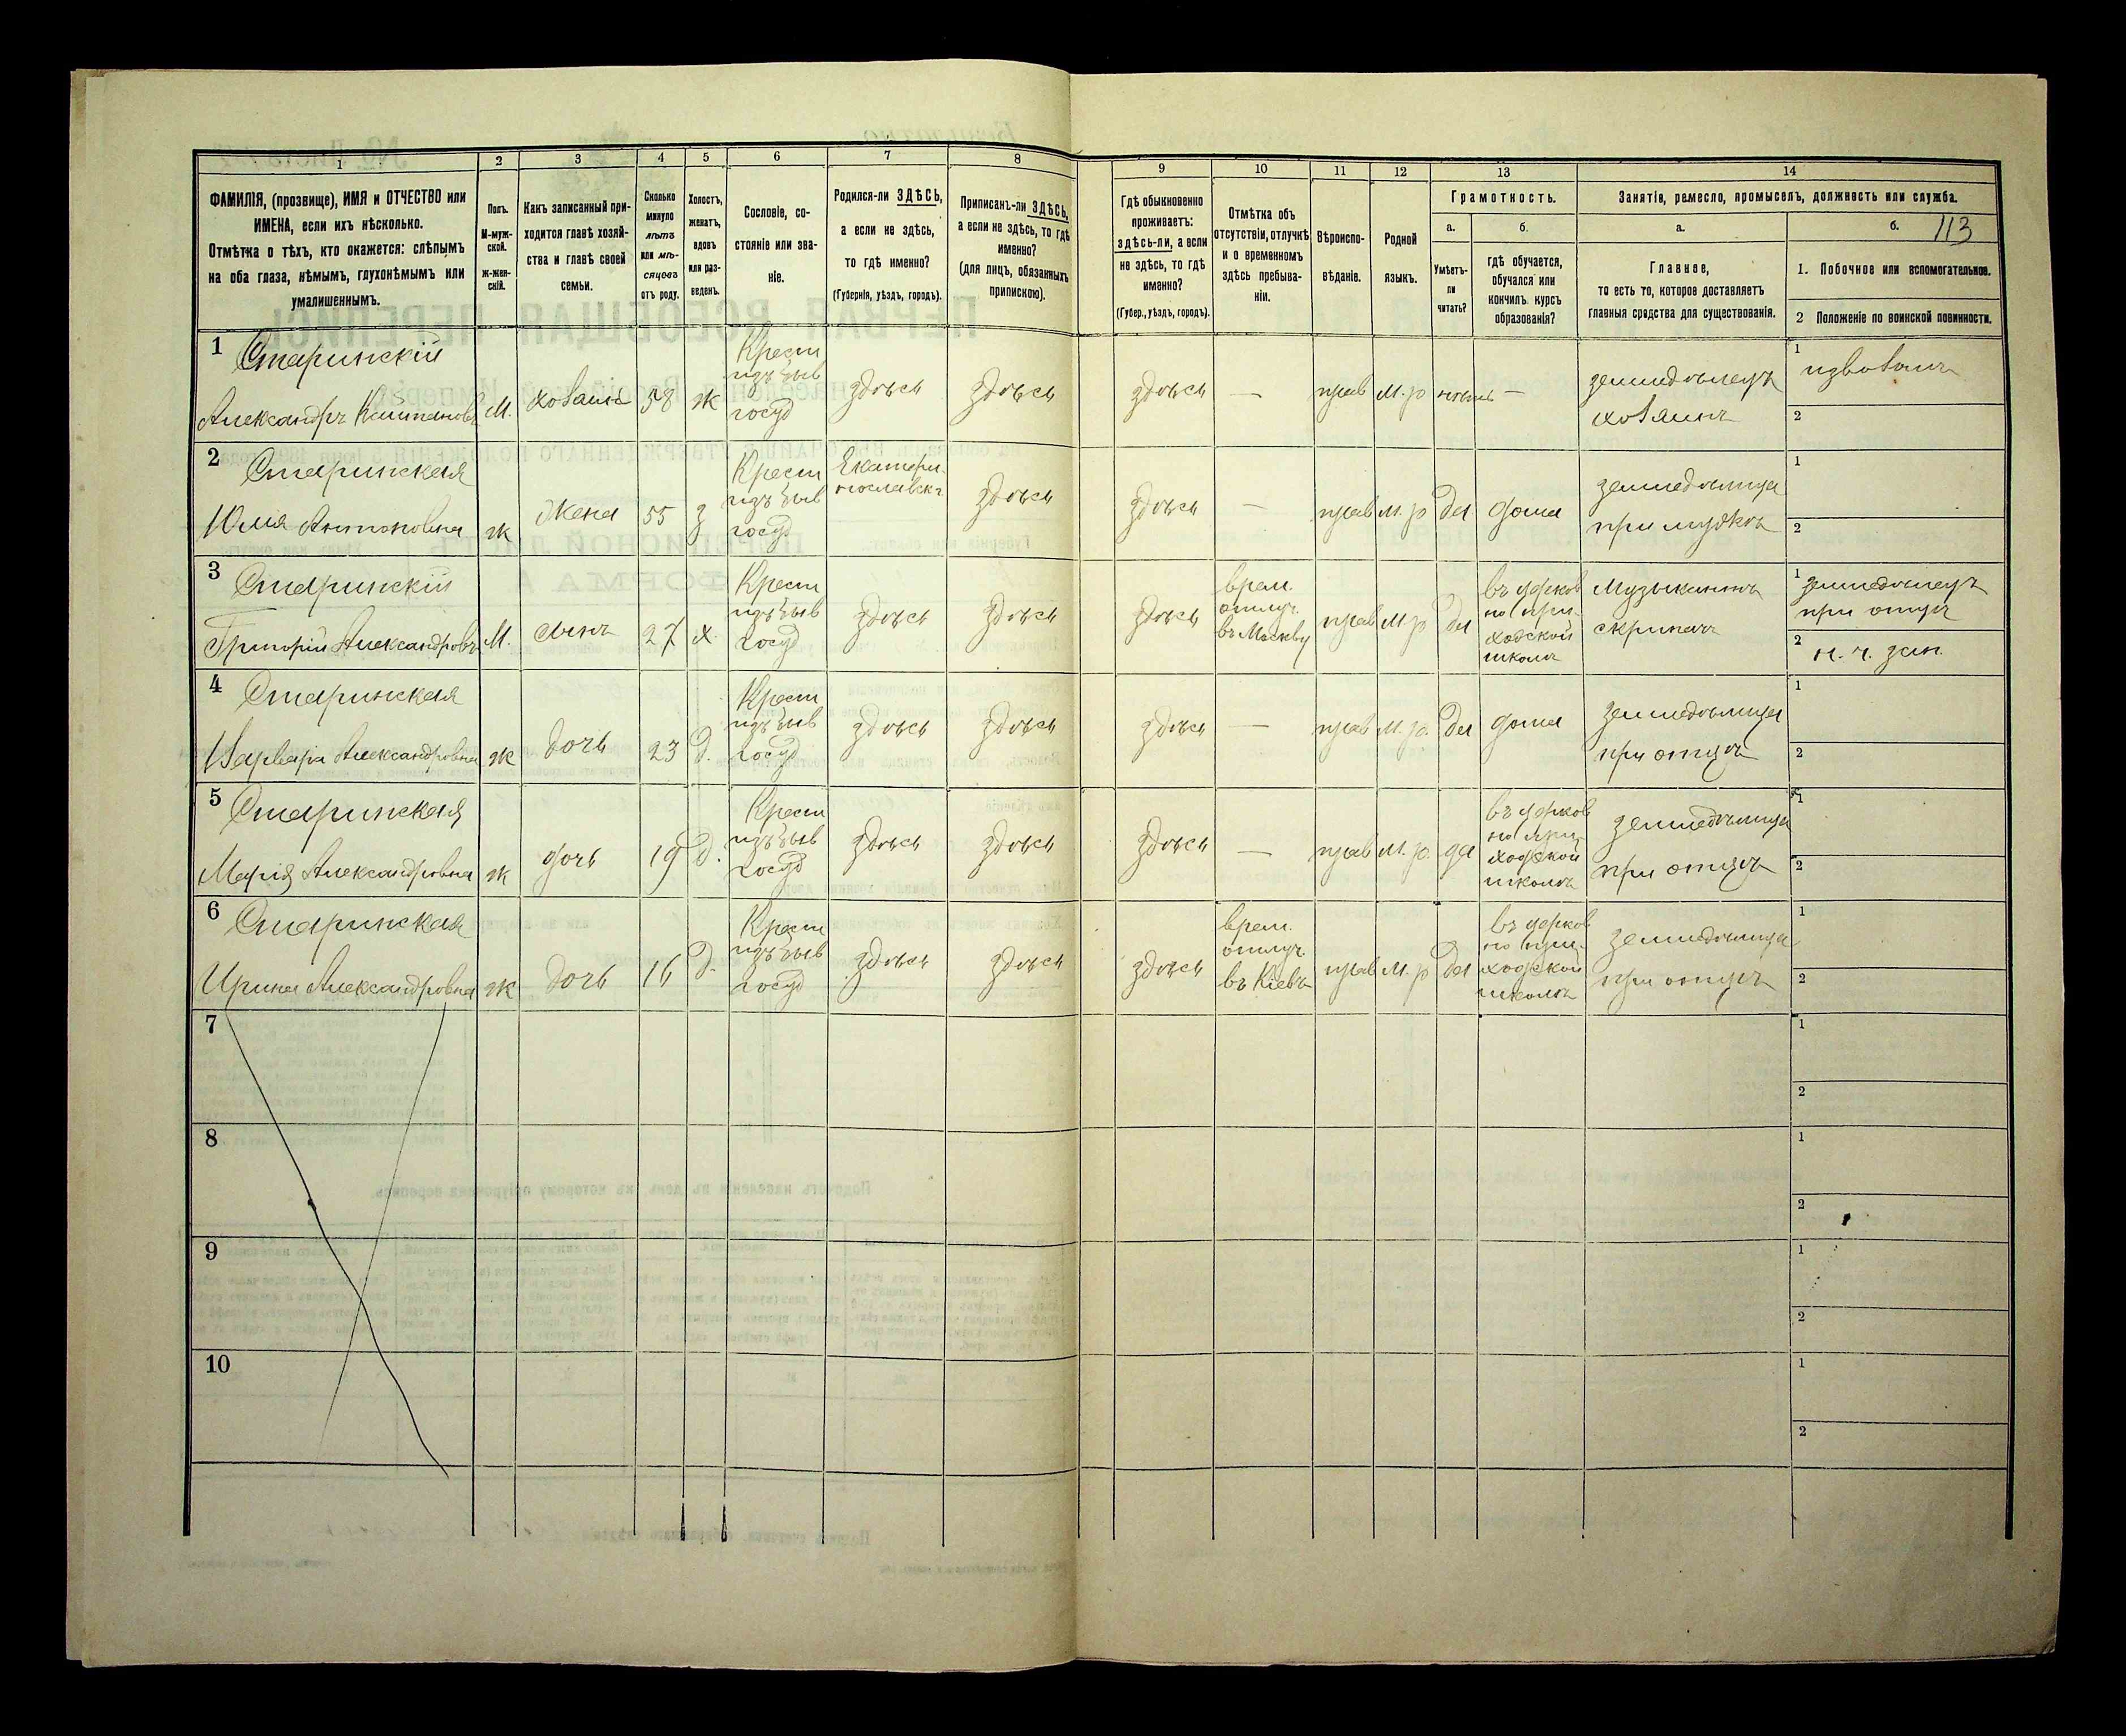 1 2 3 4 5 6 7 8 9 10 11 12 13 14
ФАМИЛІЯ, (прозвище), ИМЯ и ОТЧЕСТВО или
ИМЕНА, если ихъ нѣсколько.
Отмѣтка о тѣхъ, кто окажется: слѣпымъ
на оба глаза, нѣмымъ, глухонѣмымъ или
умалишеннымъ.
Полъ.
М-муж-
ской.
ж-жен-
скій.
Какъ записанный при-
ходится главѣ хозяй-
ства и главѣ своей
семьи.
Сколько
минуло
лѣтъ
или мѣ-
сяцевъ
отъ роду.
Холостъ,
женатъ,
вдовъ
или раз-
веденъ.
Сословіе, со-
стояніе или зва-
ніе.
Родился-ли ЗДѢСЬ,
а если не здѣсь,
то гдѣ именно?
(Губернія, уѣздъ, городъ).
Приписанъ-ли ЗДѢСЬ,
а если не здѣсь, то гдѣ
именно?
(для лицъ, обязанныхъ
припискою).
Гдѣ обыкновенно
проживаетъ:
здѣсь-ли, а если
не здѣсь, то гдѣ
именно?
(Губер., уѣздъ, городъ).
Отмѣтка объ
отсутствіи, отлучкѣ
и о временномъ
здѣсь пребыва-
ніи.
Вѣроиспо-
вѣданіе.
Родной
языкъ.
Грамотность.
а.
Умѣетъ-
ли
читать?
б.
гдѣ обучается,
обучался или
кончилъ курсъ
образованія?
Занятія, ремесло, промыселъ, должность или служба.
а.
Главное,
то есть то, которое доставляетъ
главныя средства для существованія.
б. 113
1. Побочное или вспомогательное.
2 Положеніе по воинской повинности.
1 Старинскій
Александръ
М.
58
ж
Крест
изъ быв
госуд
здѣсь
здѣсь
здѣсь
—
прав
м. р
нѣтъ
—
земледѣлецъ
хозяинъ
1
2
2 Старинская
Юлія Антоновна
ж
жена
55
з
Крест
изъ быв
госуд
Екатери-
нославск.
здѣсь
здѣсь
—
прав
м. р
да
дома
земледѣлица
при мужѣ
1
2
3 Старинскій
Григорій Александровъ
М.
сынъ
27
х.
Крест
изъ быв
госуд
здѣсь
здѣсь
здѣсь
врем.
отлуч.
въ Москву
прав
м. р
да
въ церков
но при-
ходской
школѣ
Музыкантъ
скрипачъ
1 земледѣлецъ
при отцѣ
2
4 Старинская
Варвара Александровна
ж
дочь
23
д.
Крест
изъ быв
госуд
здѣсь
здѣсь
здѣсь
—
прав
м. р.
да
дома
земледѣлица
при отцѣ
1
2
5 Старинская
Марія Александровна
ж
дочь
19
д.
Крест
изъ быв
госуд
здѣсь
здѣсь
здѣсь
—
прав
м. р.
да
въ церков
но при-
ходской
школѣ
земледѣлица
при отцѣ
1
2
6 Старинская
Ирина Александровна
ж
дочь
16
д.
Крест
изъ быв
госуд
здѣсь
здѣсь
здѣсь
врем.
отлуч.
въ Кіевъ
прав
м. р
да
въ церков
но при-
ходской
школѣ
земледѣлица
при отцѣ
1
2
7
1
2
8
1
2
9
1
2
10
1
2